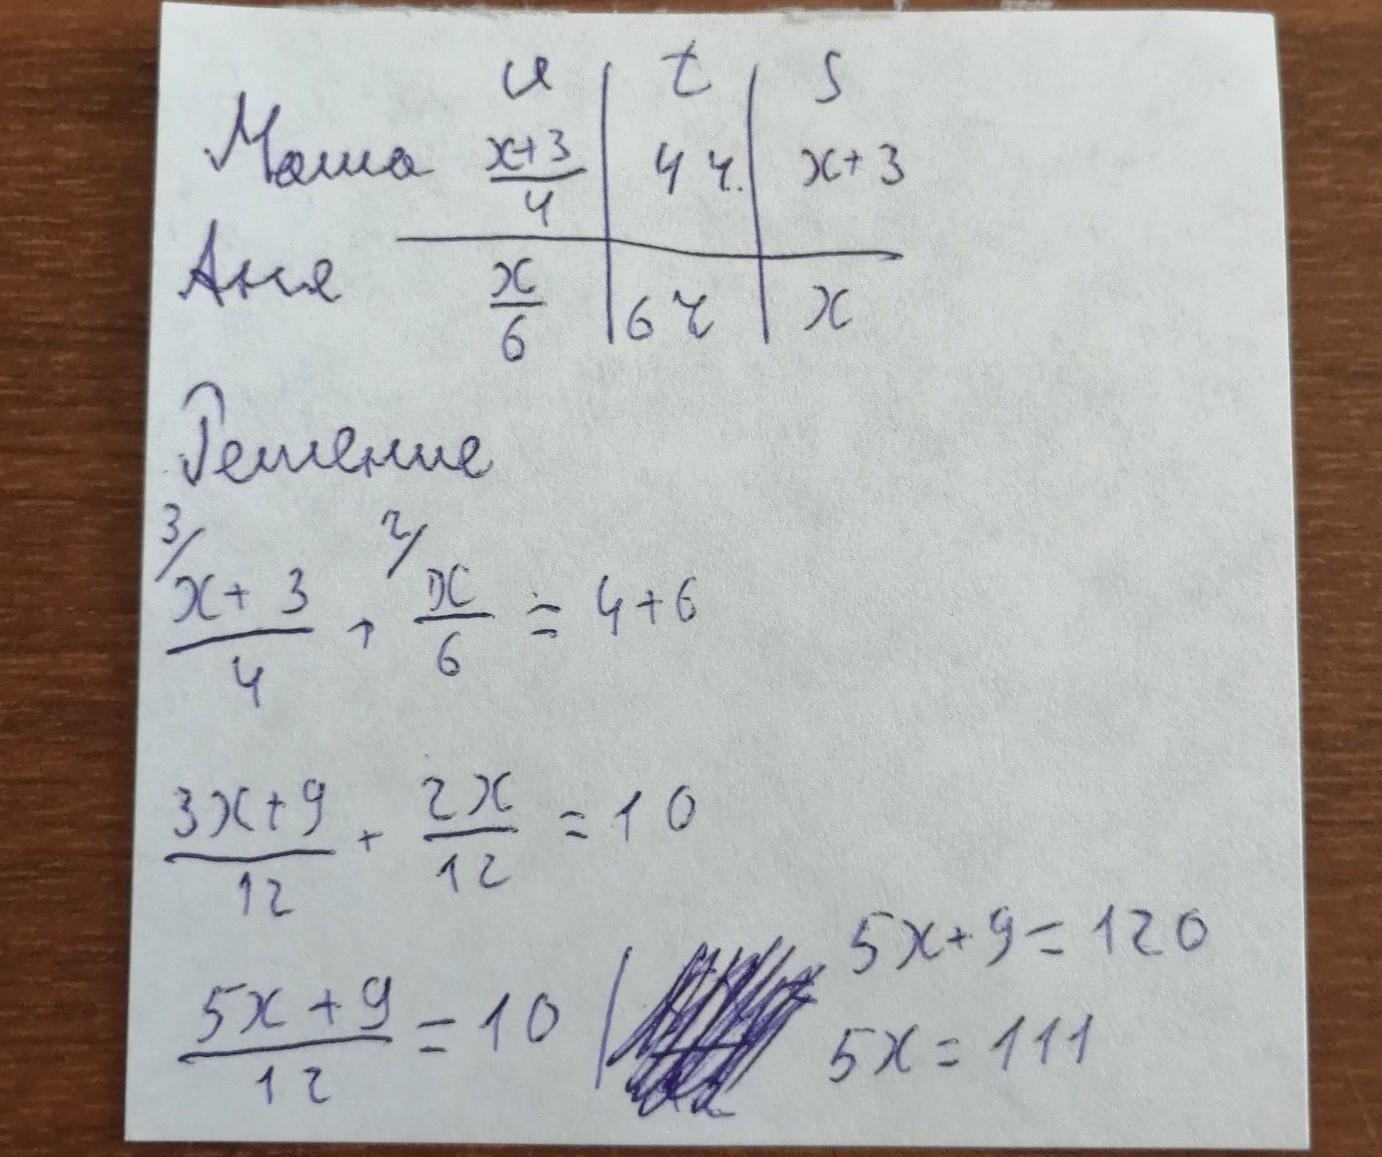 v t s
Маша (x+3)/4 4 ч. x+3
Аня x/6 6 ч x
Решение
3/ 2/
(x+3)/4 + x/6 = 4+6
(3x+9)/12 + 2x/12 = 10
(5x+9)/12 = 10 | 5x+9=120
5x=111